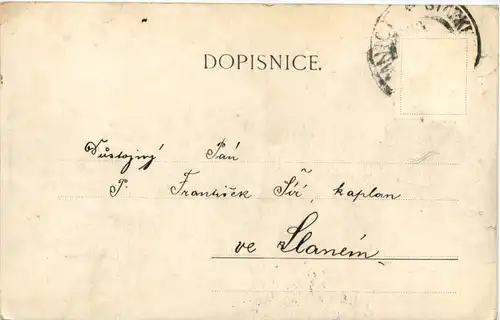 DOPISNICE.
Důstojný Pán
P. František Šír, kaplan
ve Slaném